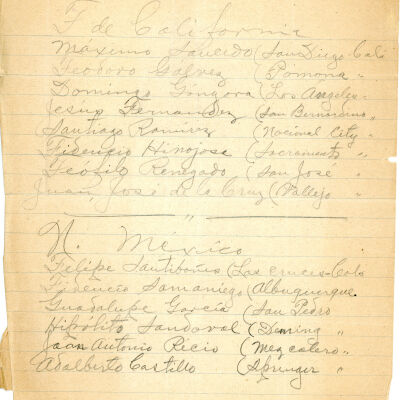 F de California
Maximo Saucedo (San Diego Cali
Teodoro Galvez (Pomona "
Domingo Góngora (Los Angeles-
Jesus Fernandez (San Bernardino "
Santiago Ramirez (Nacional City "
Fidencio Hinojosa (Sacramento "
Teófilo Renegado (San José "
Juan José de la Cruz (Vallejo "
"
N. México
Felipe Santibañes (Las cruces-Colo
Fidencio Samaniego (Albuquerque.
Guadalupe García (San Pedro
Hipolito Sandoval (Deming "
Juan Antonio Recio (Mezcalero "
Adalberto Castillo (Springer "